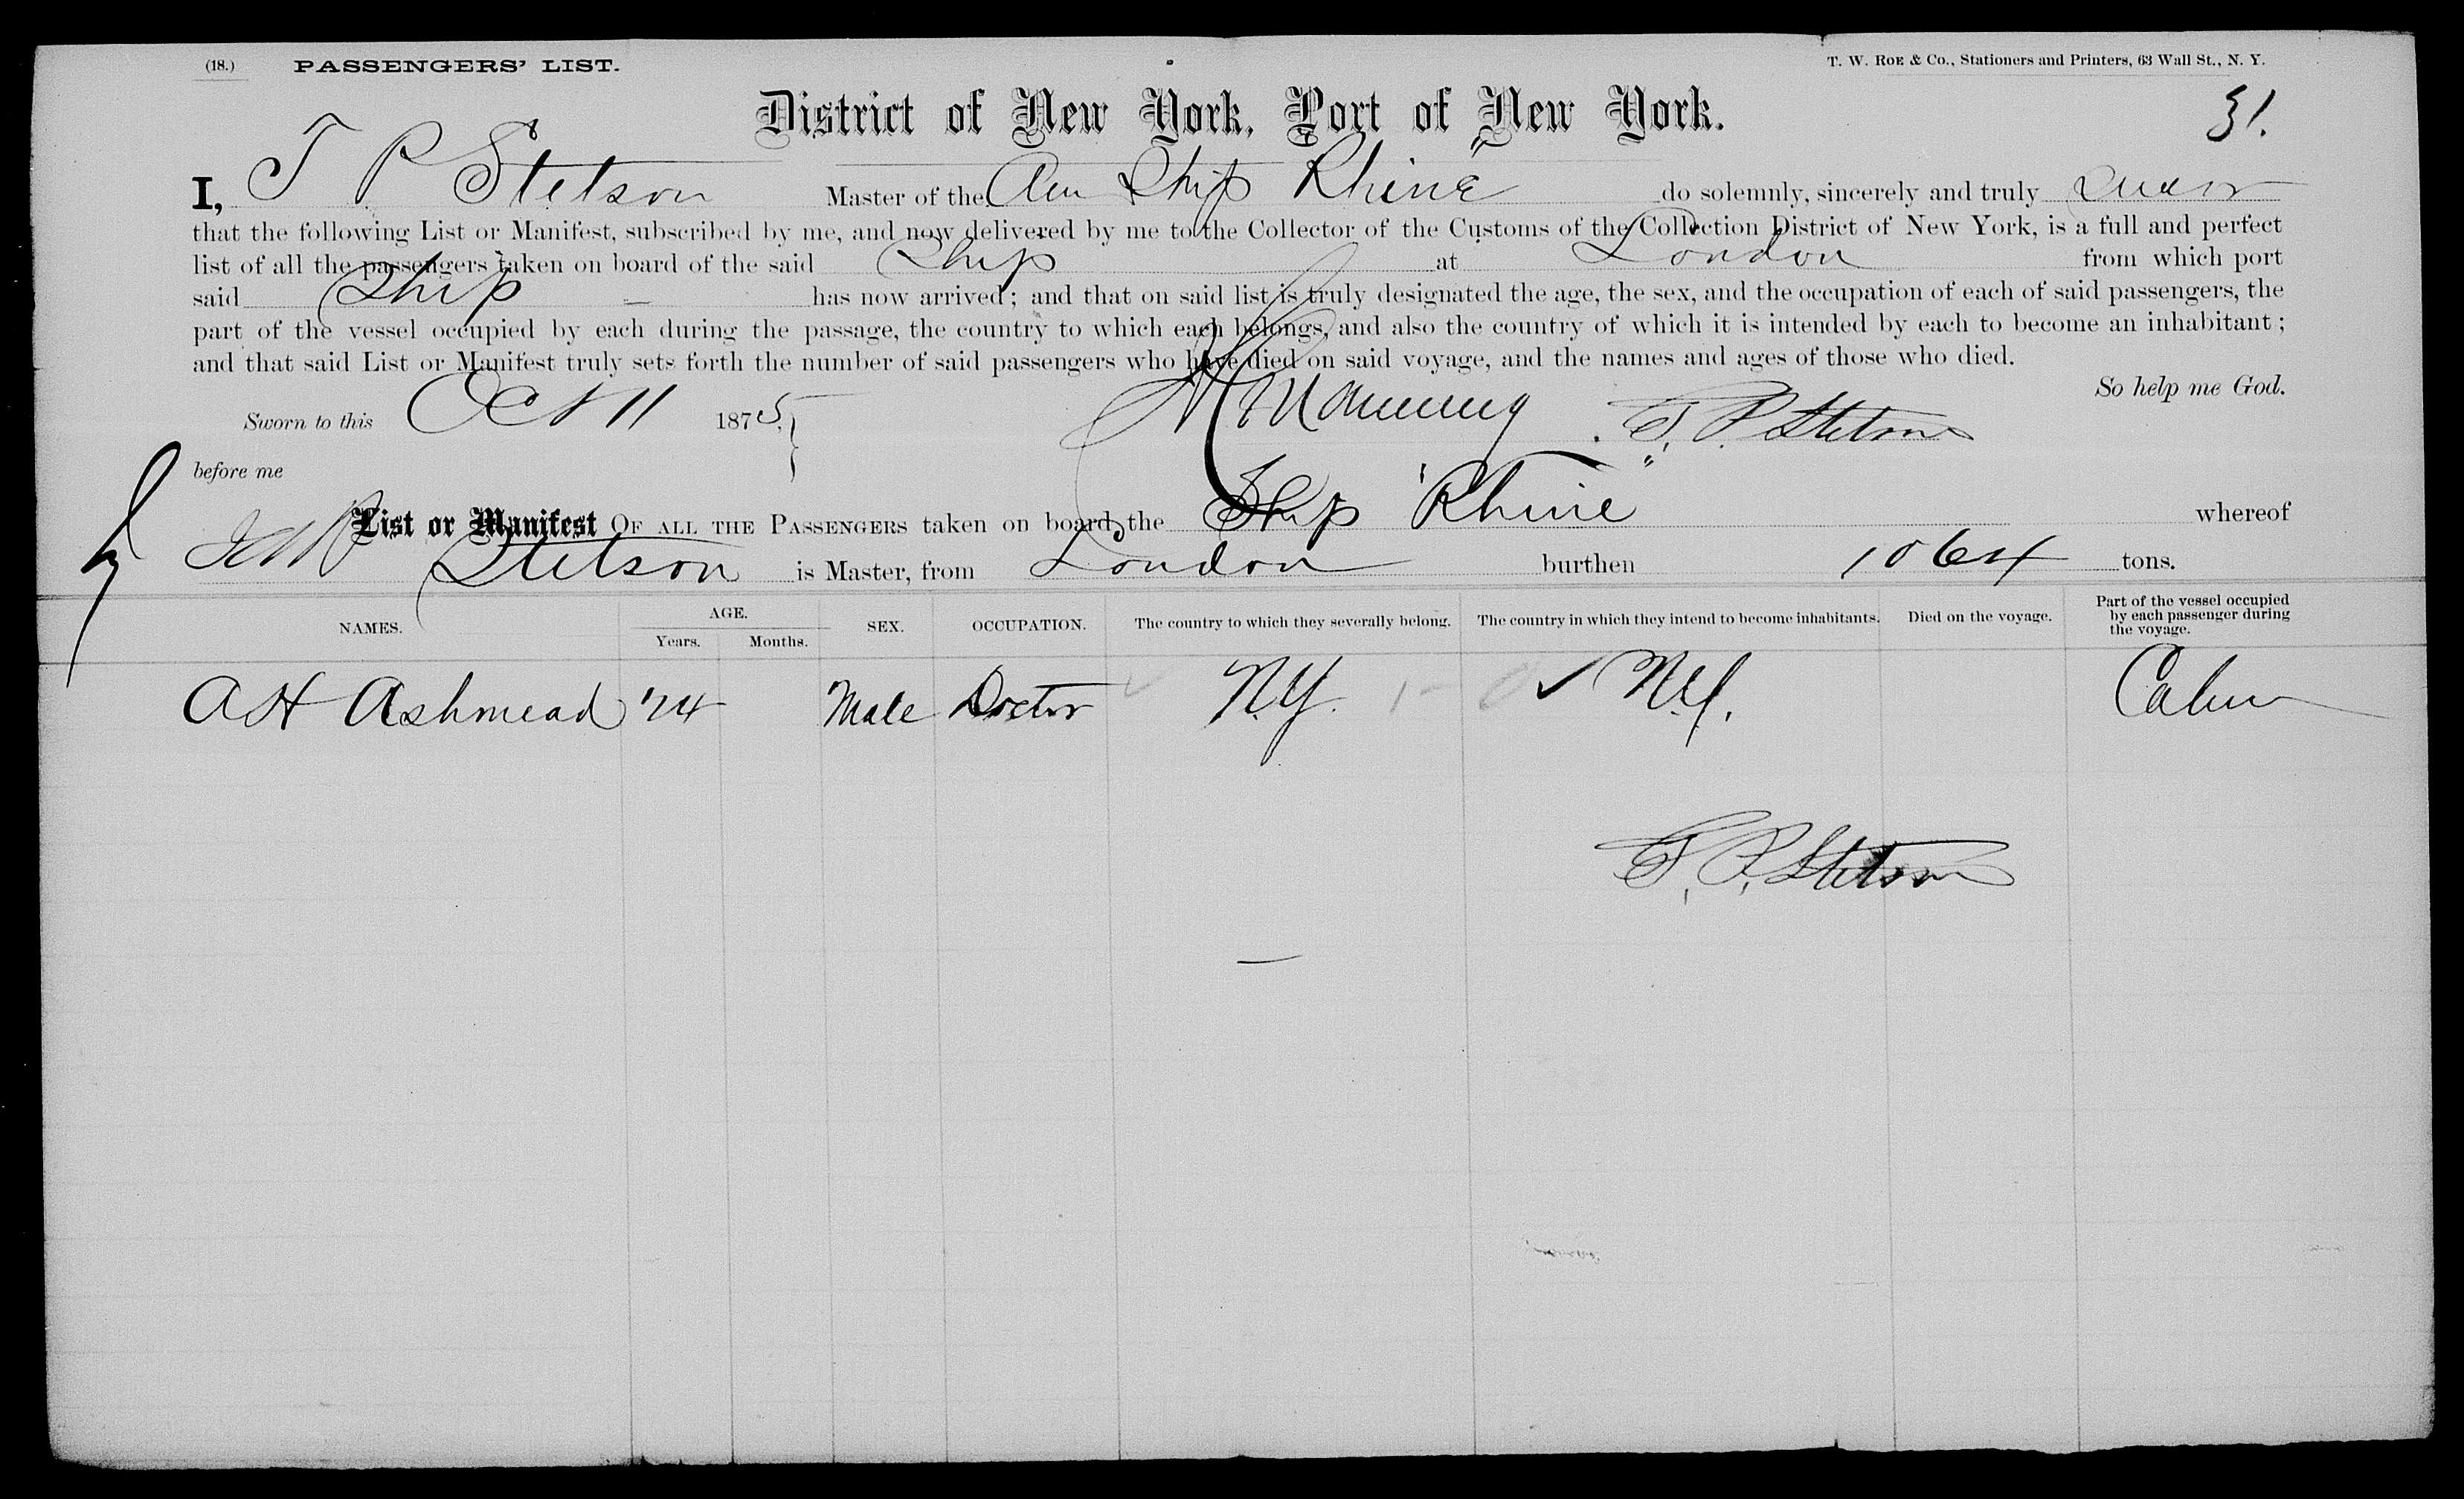 (18.) PASSENGERS' LIST. T. W. ROE & Co., Stationers and Printers, 63 Wall St., N. Y.
District of New York, Port of New York. 31.
I, T P Stetson Master of the Am Ship Rhine do solemnly, sincerely and truly swear
that the following List or Manifest, subscribed by me, and now delivered by me to the Collector of the Customs of the Collection District of New York, is a full and perfect
list of all the passengers taken on board of the said Ship at London from which port
said Ship — has now arrived; and that on said list is truly designated the age, the sex, and the occupation of each of said passengers, the
part of the vessel occupied by each during the passage, the country to which each belongs, and also the country of which it is intended by each to become an inhabitant;
and that said List or Manifest truly sets forth the number of said passengers who have died on said voyage, and the names and ages of those who died.
So help me God.
Sworn to this Oct 11 1875, Manning T. P. Stetson
before me
List or Manifest OF ALL THE PASSENGERS taken on board the Ship Rhine whereof
Stetson is Master, from London burthen 1064 tons.
NAMES. AGE. Years. Months. SEX. OCCUPATION. The country to which they severally belong. The country in which they intend to become inhabitants. Died on the voyage. Part of the vessel occupied by each passenger during the voyage.
A H Ashmead 24 Male Doctor N.Y. ✓ N.Y. Cabin
T. P. Stetson